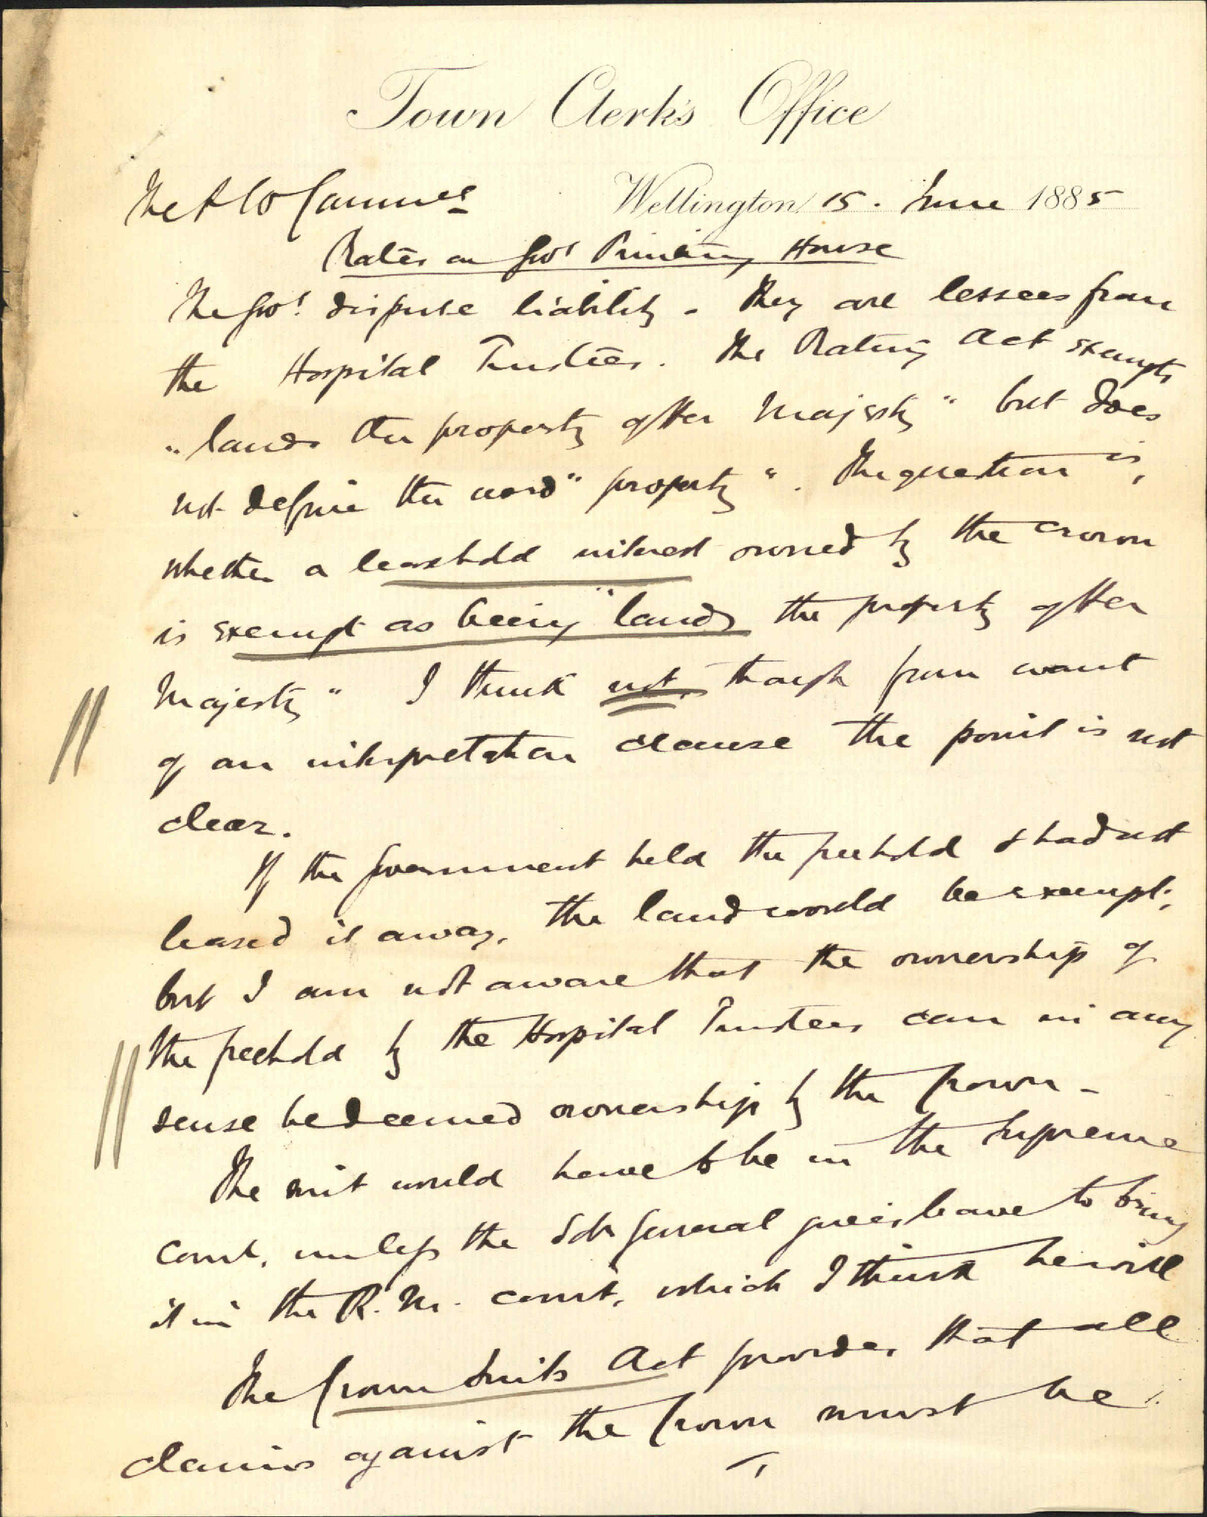 Town Clerk's Office
Wellington 15. June 1885
The P W Committee
Rates on Govt Printing House
The Govt dispute liability. They are lessees from
the Hospital Trustees. The Rating Act exempts
"lands the property of Her Majesty" but does
not define the word "property". The question is,
whether a leasehold interest owned by the crown
is exempt as being "lands the property of Her
Majesty" I think not, though from want
of an interpretation clause the point is not
clear.
If the Government held the freehold & had not
leased it away, the land would be exempt;
but I am not aware that the ownership of
the freehold by the Hospital Trustees can in any
sense be deemed ownership by the Crown -
The suit would have to be in the Supreme
Court, unless the Sol General gives leave to bring
it in the R. M. court, which I think he will
The Crown Suits Act provides that all
claims against the Crown must be